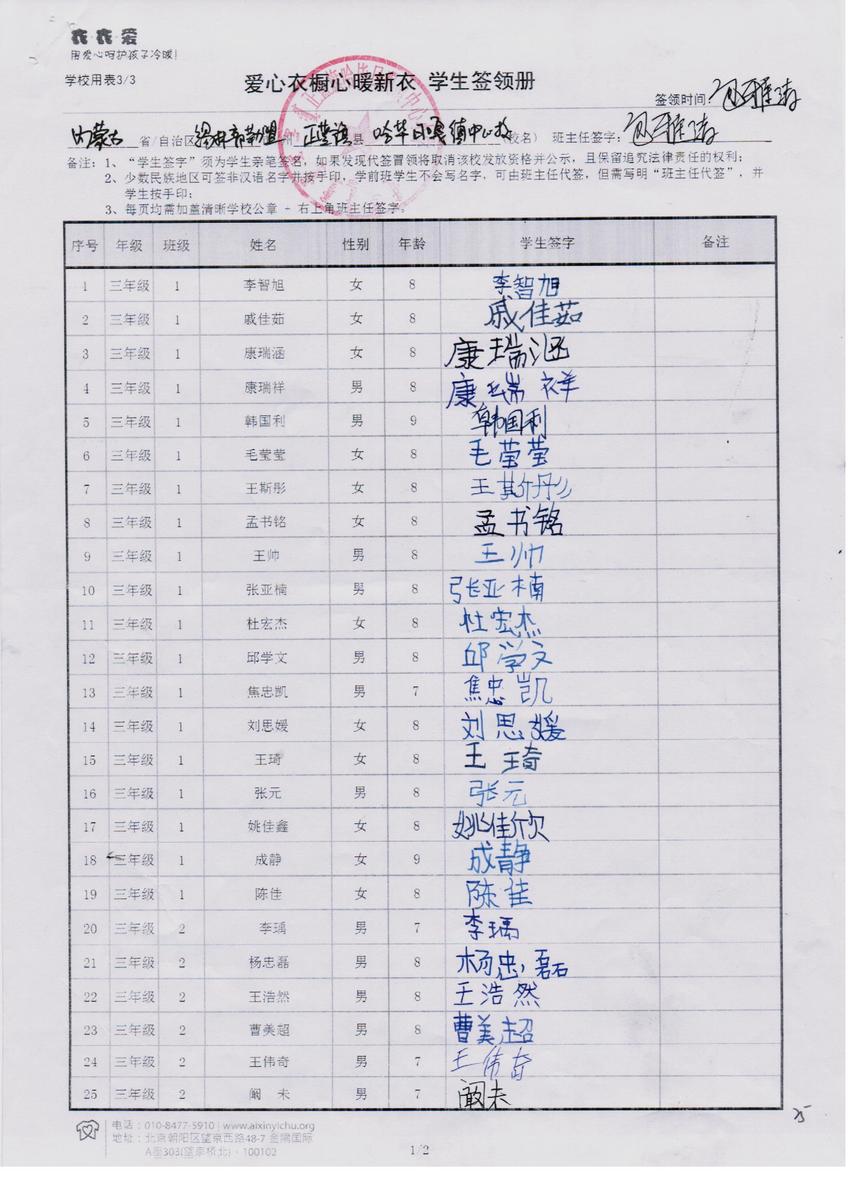 衣衣爱
用爱心呵护孩子冷暖!
学校用表3/3
爱心衣橱心暖新衣 学生签领册
签领时间: 包雅涛
内蒙古 省/自治区 锡林郭勒盟 州 正蓝旗 县 哈毕日嘎镇中心校 (校名) 班主任签字: 包雅涛
备注: 1、“学生签字”须为学生亲笔签名,如果发现代签冒领将取消该校发放资格并公示,且保留追究法律责任的权利;
2、少数民族地区可签非汉语名字并按手印,学前班学生不会写名字,可由班主任代签,但需写明“班主任代签”,并
学生按手印;
3、每页均需加盖清晰学校公章 + 右上角班主任签字。
序号 年级 班级 姓名 性别 年龄 学生签字 备注
1 三年级 1 李智旭 女 8 李智旭
2 三年级 1 戚佳茹 女 8 戚佳茹
3 三年级 1 康瑞涵 女 8 康瑞涵
4 三年级 1 康瑞祥 男 8 康瑞祥
5 三年级 1 韩国利 男 9 韩国利
6 三年级 1 毛莹莹 女 8 毛莹莹
7 三年级 1 王斯彤 女 8 王斯彤
8 三年级 1 孟书铭 女 8 孟书铭
9 三年级 1 王帅 男 8 王帅
10 三年级 1 张亚楠 男 8 张亚楠
11 三年级 1 杜宏杰 女 8 杜宏杰
12 三年级 1 邱学文 男 8 邱学文
13 三年级 1 焦忠凯 男 7 焦忠凯
14 三年级 1 刘思媛 女 8 刘思媛
15 三年级 1 王琦 女 8 王琦
16 三年级 1 张元 男 8 张元
17 三年级 1 姚佳鑫 女 8 姚佳欣
18 三年级 1 成静 女 9 成静
19 三年级 1 陈佳 女 8 陈佳
20 三年级 2 李瑀 男 7 李瑀
21 三年级 2 杨忠磊 男 8 杨忠磊
22 三年级 2 王浩然 男 8 王浩然
23 三年级 2 曹美超 男 8 曹美超
24 三年级 2 王伟奇 男 7 王伟奇
25 三年级 2 阚 未 男 7 阚未
25
电话:010-8477-5910 | www.aixinyichu.org
地址:北京朝阳区望京西路48-7 金隅国际
A座303(望京桥北)·100102
1/2